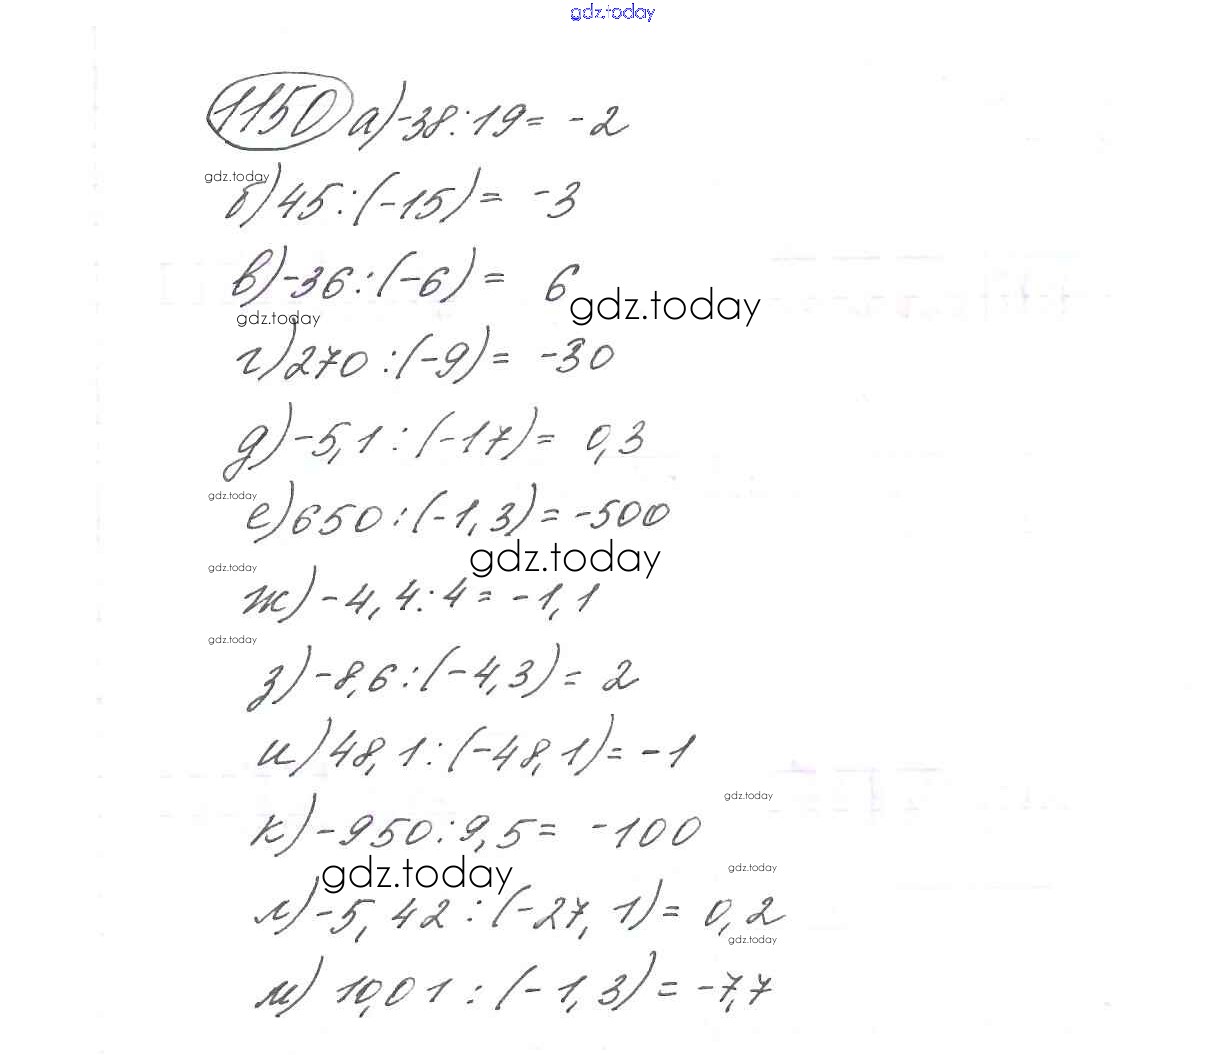 gdz.today
1150 а) -38:19= -2
gdz.today
б) 45:(-15)= -3
в) -36:(-6)= 6
gdz.today
gdz.today
г) 270:(-9)= -30
д) -5,1:(-17)= 0,3
gdz.today
е) 650:(-1,3)= -500
gdz.today
gdz.today
ж) -4,4:4= -1,1
gdz.today
з) -8,6:(-4,3)= 2
и) 48,1:(-48,1)= -1
gdz.today
к) -950:9,5= -100
gdz.today
gdz.today
л) -5,42:(-27,1)= 0,2
gdz.today
м) 10,01:(-1,3)= -7,7